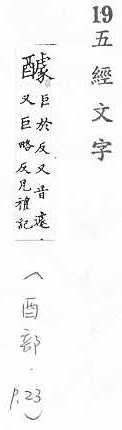 19五經文字
醵
巨於反又音遽
又巨略反見禮記
(酉部·p.23)